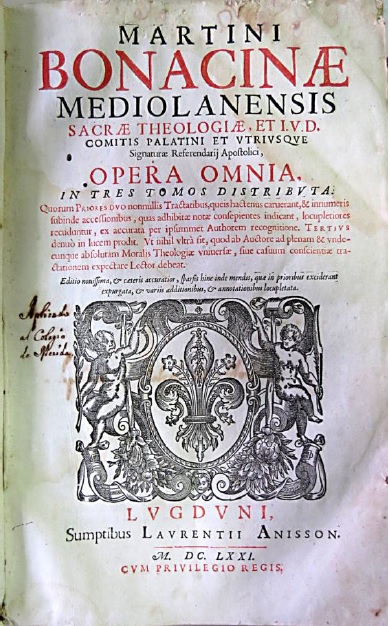 MARTINI
BONACINÆ
MEDIOLANENSIS
SACRÆ THEOLOGIÆ, ET I.V.D.
COMITIS PALATINI ET VTRIVSQVE
Signaturæ Referendarij Apostolici,
OPERA OMNIA,
IN TRES TOMOS DISTRIBVTA:
Quorum PRIORES DVO nonnullis Tractatibus, queis hactenus caruerant, & innumeris
subinde accessionibus, quas adhibitæ notæ consepientes indicant, locupletiores
recuduntur, ex accurata per ipsummet Authorem recognitione. TERTIVS
denuò in lucem prodit. Vt nihil vltrà sit, quod ab Auctore ad plenam & vnde-
cunque absolutam Moralis Theologiæ vniuersæ, siue casuum conscientiæ tra-
ctationem expectare Lector debeat.
Editio nouissima, & cæteris accuratior, sparsis hinc inde mendis, quæ in prioribus exciderant
expurgata, & variis additionibus, & annotationibus locupletata.
Aplicado
al Colegio
de Merida
LVGDVNI,
Sumptibus LAVRENTII ANISSON.
M. DC. LXXI.
CVM PRIVILEGIO REGIS.